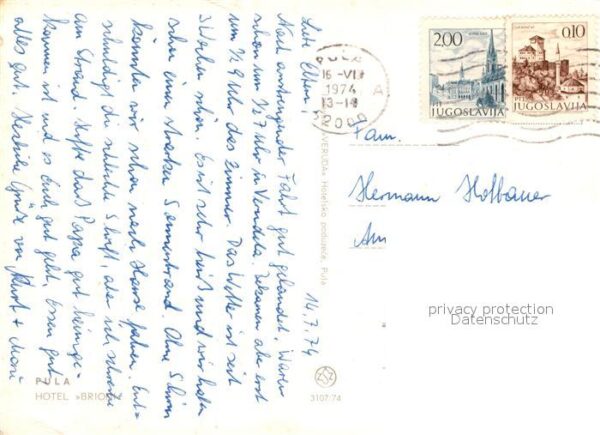 14.7.74
Liebe Eltern,
Nach anstrengender Fahrt gut gelandet. Waren
schon um ½ 7 Uhr in Verudela. Bekamen aber erst
um ½ 9 Uhr das Zimmer. Das Wetter ist seit
3 Uhr schön. Es ist sehr heiß und wir haben
schon einen starken Sonnenbrand. Ohne Schirm
könnten wir schon nach Hause fahren. Ent-
schuldigt die schlechte Schrift, aber ich schreibe
am Strand. Hoffe das Papa gut heimge-
kommen ist und es Euch gut geht. Essen gut
alles gut. Herzliche Grüße von Kurt + Mosi
PULA
HOTEL »BRIONI«
»VERUDA« Hotelsko poduzeće, Pula
3107/74
PULA
16-VII
1974
13-14
A
52000
2,00
JUGOSLAVIJA
0,10
JUGOSLAVIJA
Fam.
Hermann Hofbauer
Am
privacy protection
Datenschutz